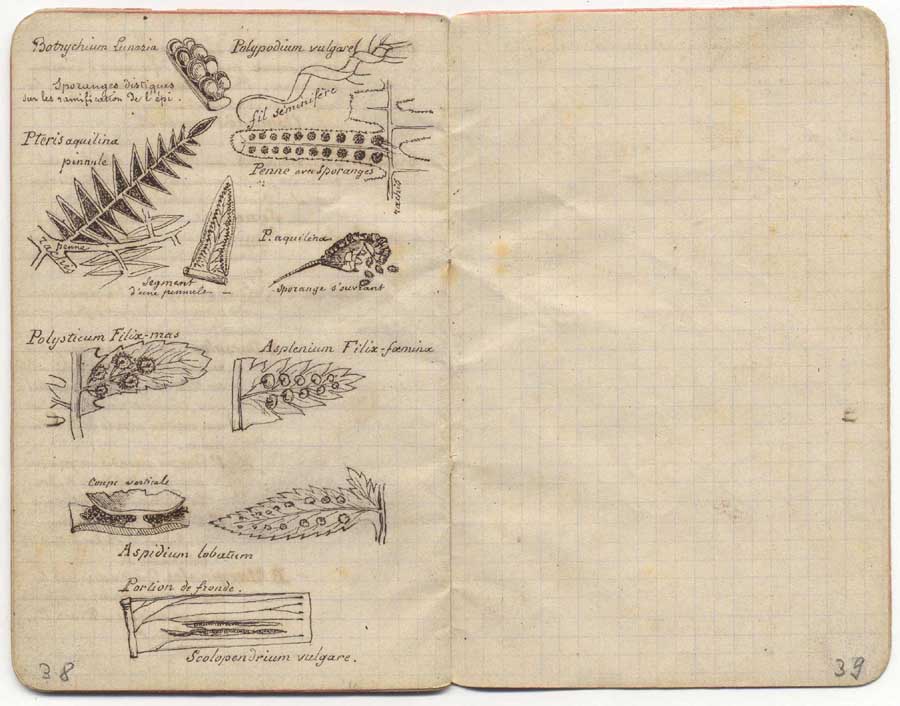 Botrychium Lunaria
Sporanges distiques
sur les ramification de l'épi.
Polypodium vulgare
fil séminifère
Penne avec Sporanges
rachis
Pteris aquilina
pinnule
penne
rachis
Segment
d'une pennule
P. aquilina
Sporange s'ouvrant
Polysticum Filix-mas
Asplenium Filix-fœmina
Coupe verticale
Aspidium lobatum
Portion de fronde.
Scolopendrium vulgare.
38
39